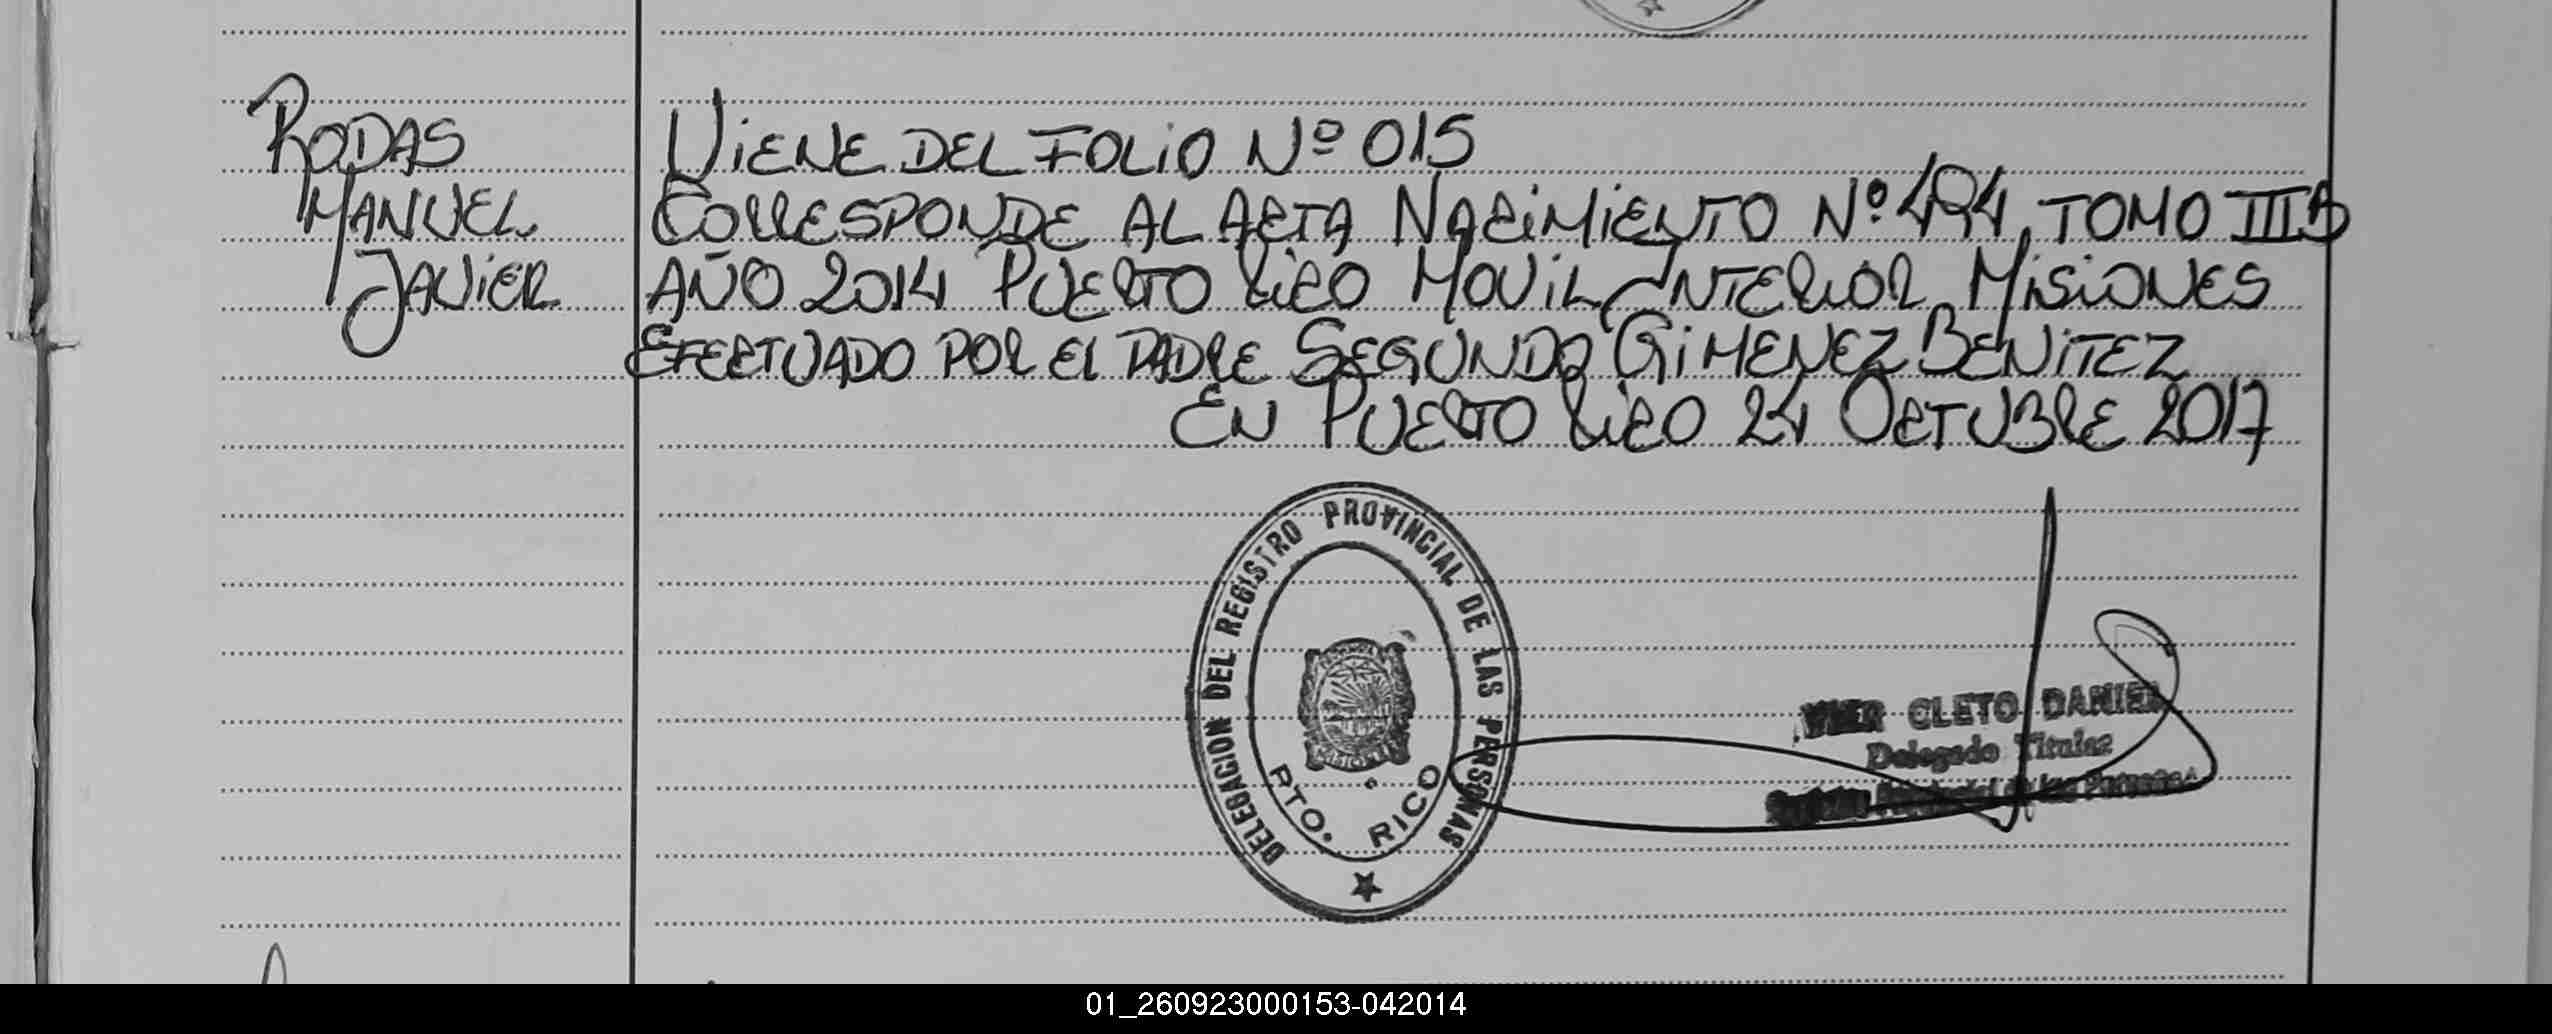 RODAS
MANUEL
JAVIER
VIENE DEL FOLIO Nº 015
CORRESPONDE AL ACTA NACIMIENTO Nº 494, TOMO III B
AÑO 2014 PUERTO RICO MOVIL INTERIOR MISIONES
EFECTUADO POR EL PADRE SEGUNDO GIMENEZ BENITEZ
EN PUERTO RICO 24 OCTUBRE 2017
DELEGACION DEL REGISTRO PROVINCIAL DE LAS PERSONAS
PTO. RICO
CLETO DANIEL
Delegado Titular
de las Personas
01_260923000153-042014